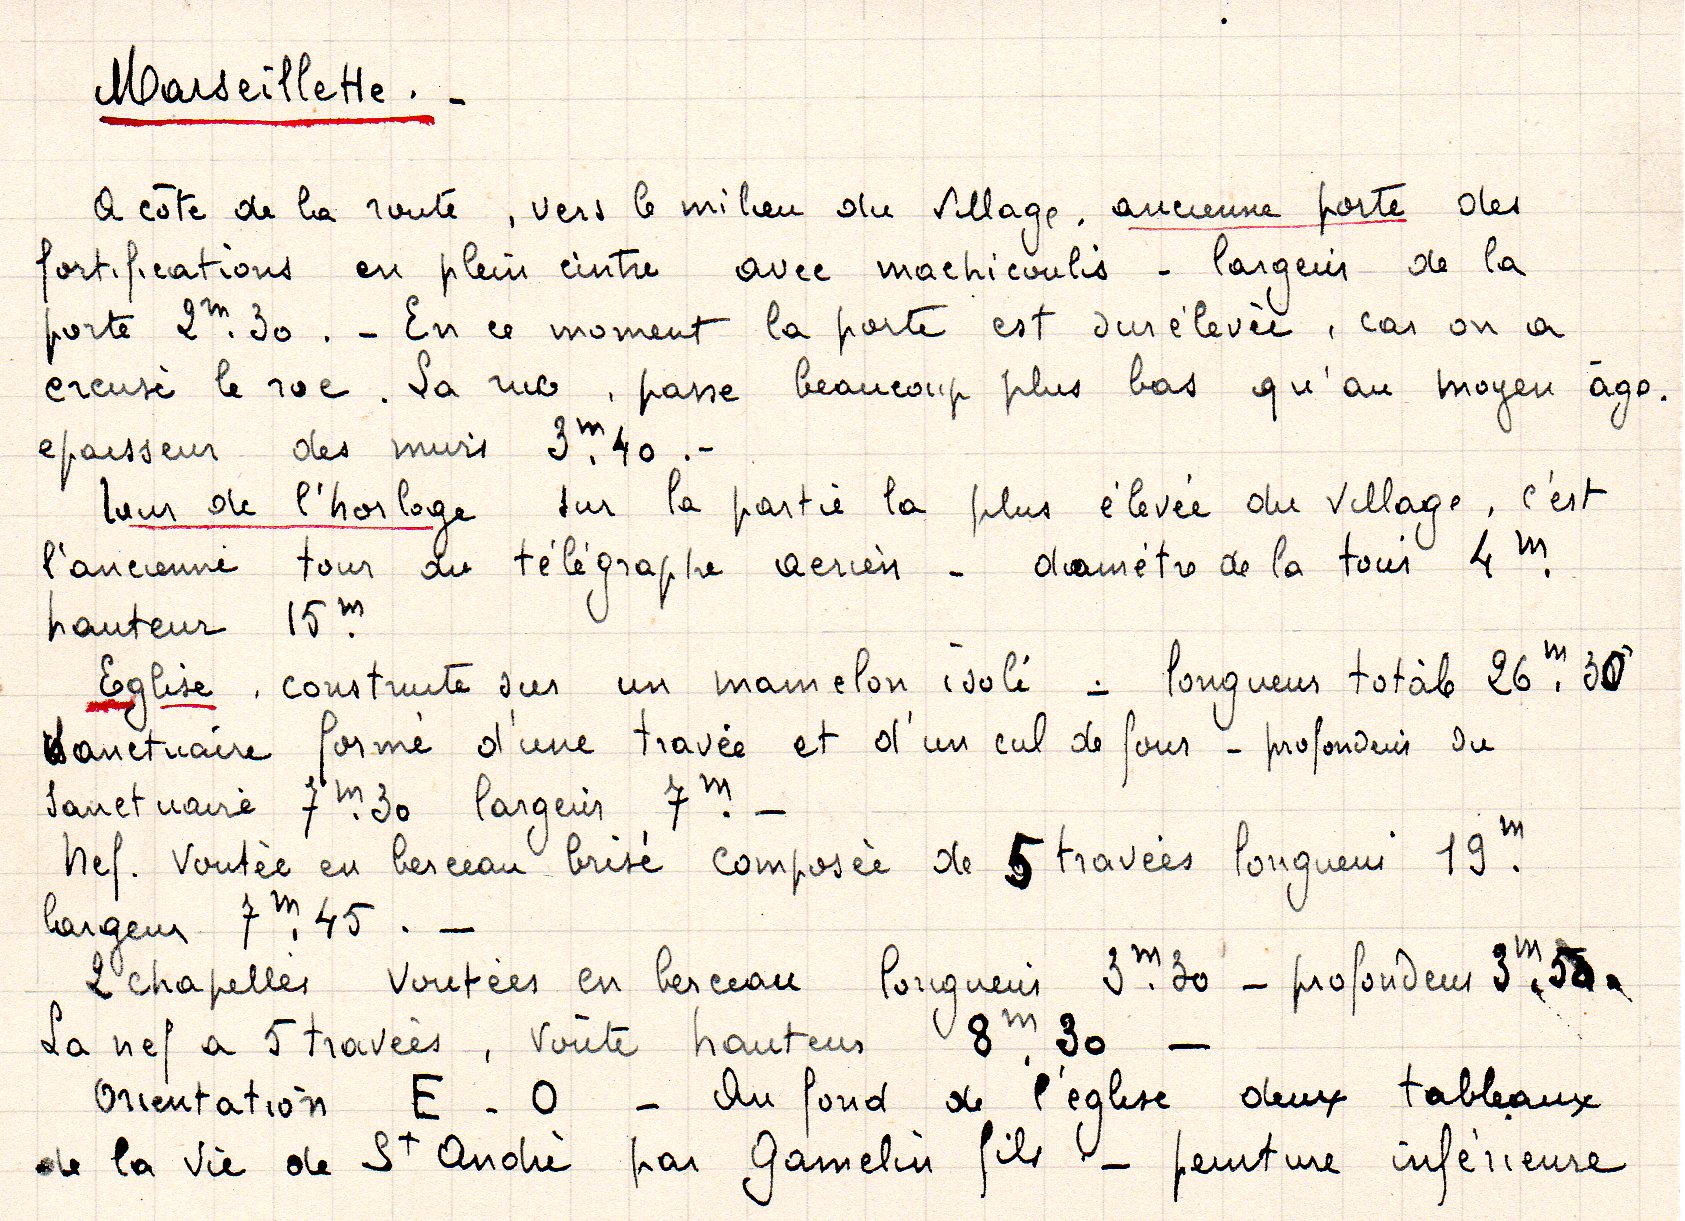 Marseillette. -
A côté de la route, vers le milieu du village, ancienne porte des
fortifications en plein cintre avec machicoulis - largeur de la
porte 2m.30. - En ce moment la porte est surélevée, car on a
creusé le roc. La rue, passe beaucoup plus bas qu'au moyen âge.
epaisseur des murs 3m.40. -
Tour de l'horloge sur la partie la plus élevée du village, c'est
l'ancienne tour du télégraphe aerien - diamètre de la tour 4m.
hauteur 15m.
Eglise, construite sur un mamelon isolé - longueur totale 26m.30
Sanctuaire formé d'une travée et d'un cul de four - profondeur du
sanctuaire 7m.30 largeur 7m. -
Nef. voutée en berceau brisé composée de 5 travées longueur 19m.
largeur 7m.45. -
2 chapelles voutées en berceau longueur 3m.30 - profondeur 3m.50.
La nef a 5 travées, voûte hauteur 8m.30 -
Orientation E - O - Au fond de l'église deux tableaux
de la vie de St André par Gamelin fils - peinture inférieure